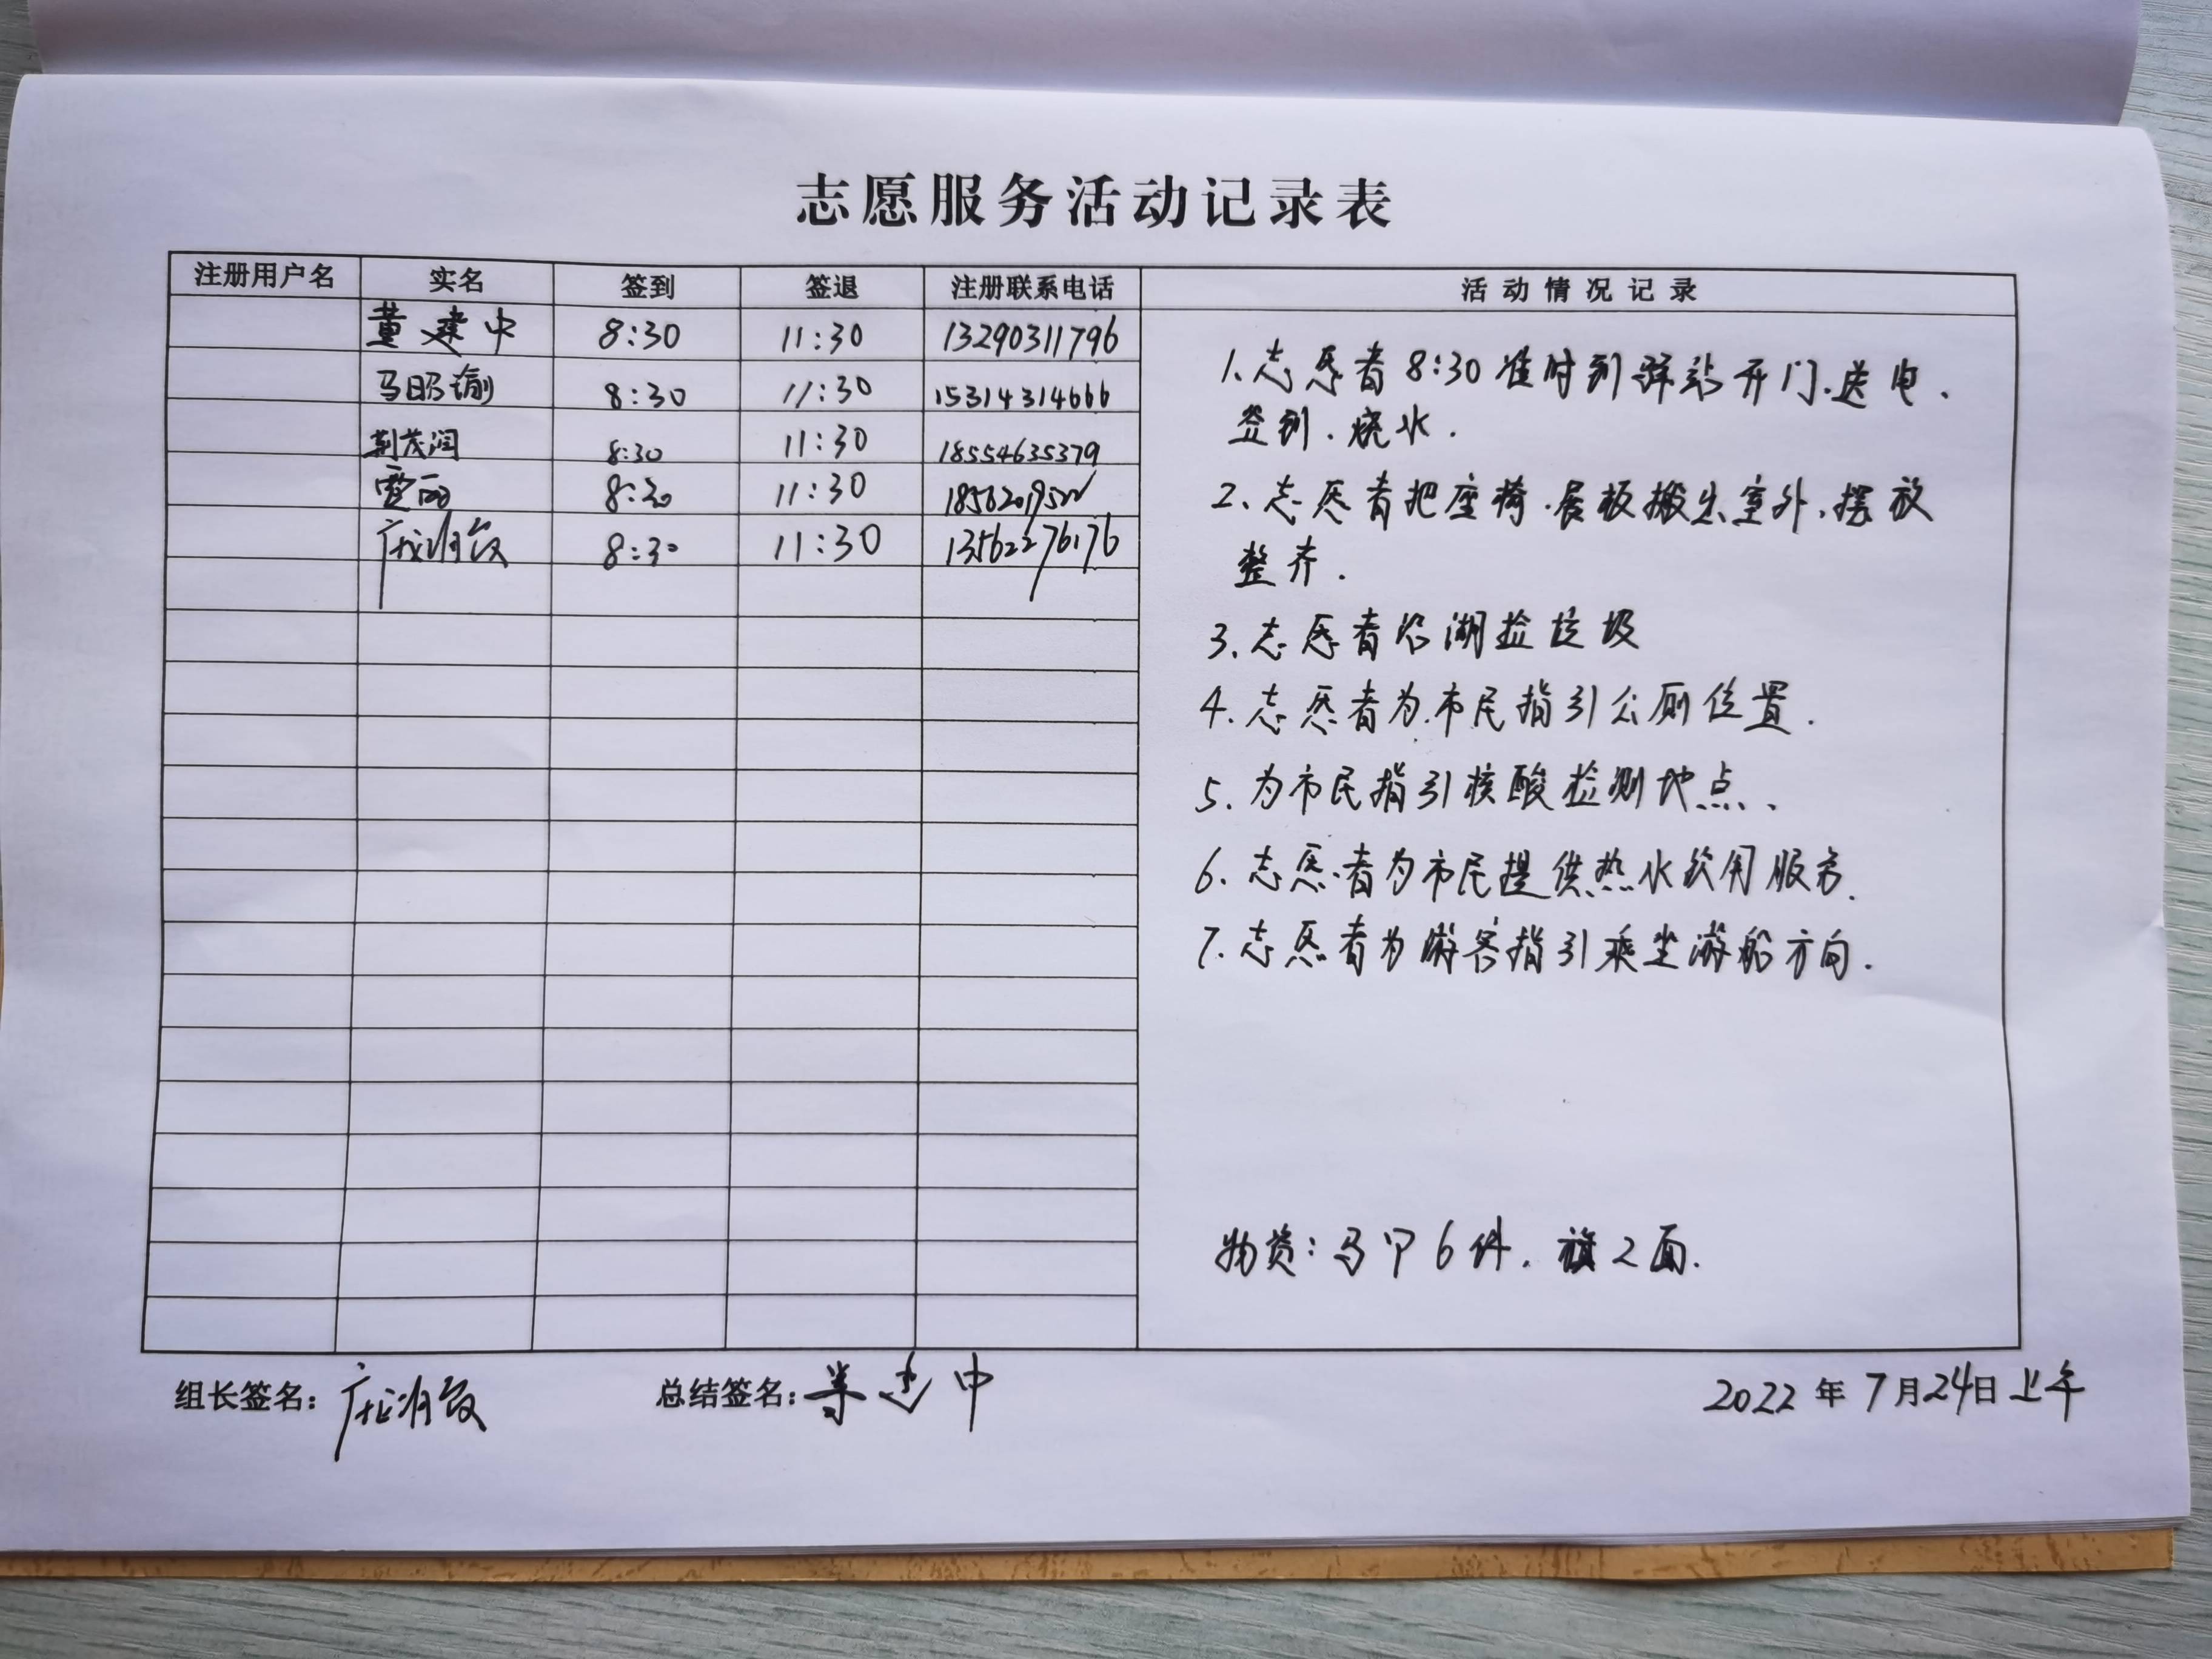 志愿服务活动记录表
注册用户名 实名 签到 签退 注册联系电话 活动情况记录
董建中 8:30 11:30 13290311796
马昭瑜 8:30 11:30 15314314666
荆茂润 8:30 11:30 18554635379
8:30 11:30
8:30 11:30 13562276176
1.志愿者8:30准时到驿站开门、送电、
签到、烧水.
2、志愿者把座椅、展板搬出室外,摆放
整齐.
3、志愿者沿湖捡垃圾
4.志愿者为市民指引公厕位置.
5.为市民指引核酸检测地点、
6.志愿者为市民提供热水饮用服务.
7.志愿者为游客指引乘坐游船方向.
物资:马甲6件,旗2面.
组长签名: 总结签名: 2022年7月24日上午